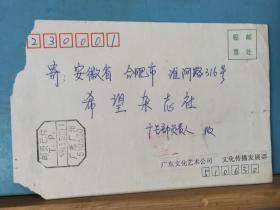 230001
贴邮
票处
寄：安徽省 合肥市 淮河路316号
希望杂志社
广告部负责人 收
广东文化艺术公司 文化传播发展部
510630